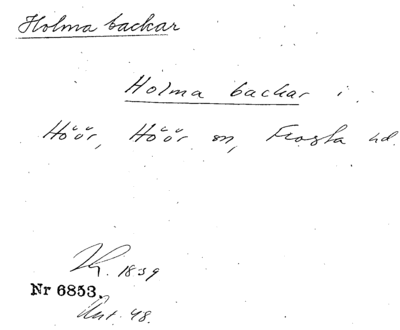 Holma backar
Holma backar i
Höör, Höör sn, Frosta hd.
1839
Nr 6853.
48.